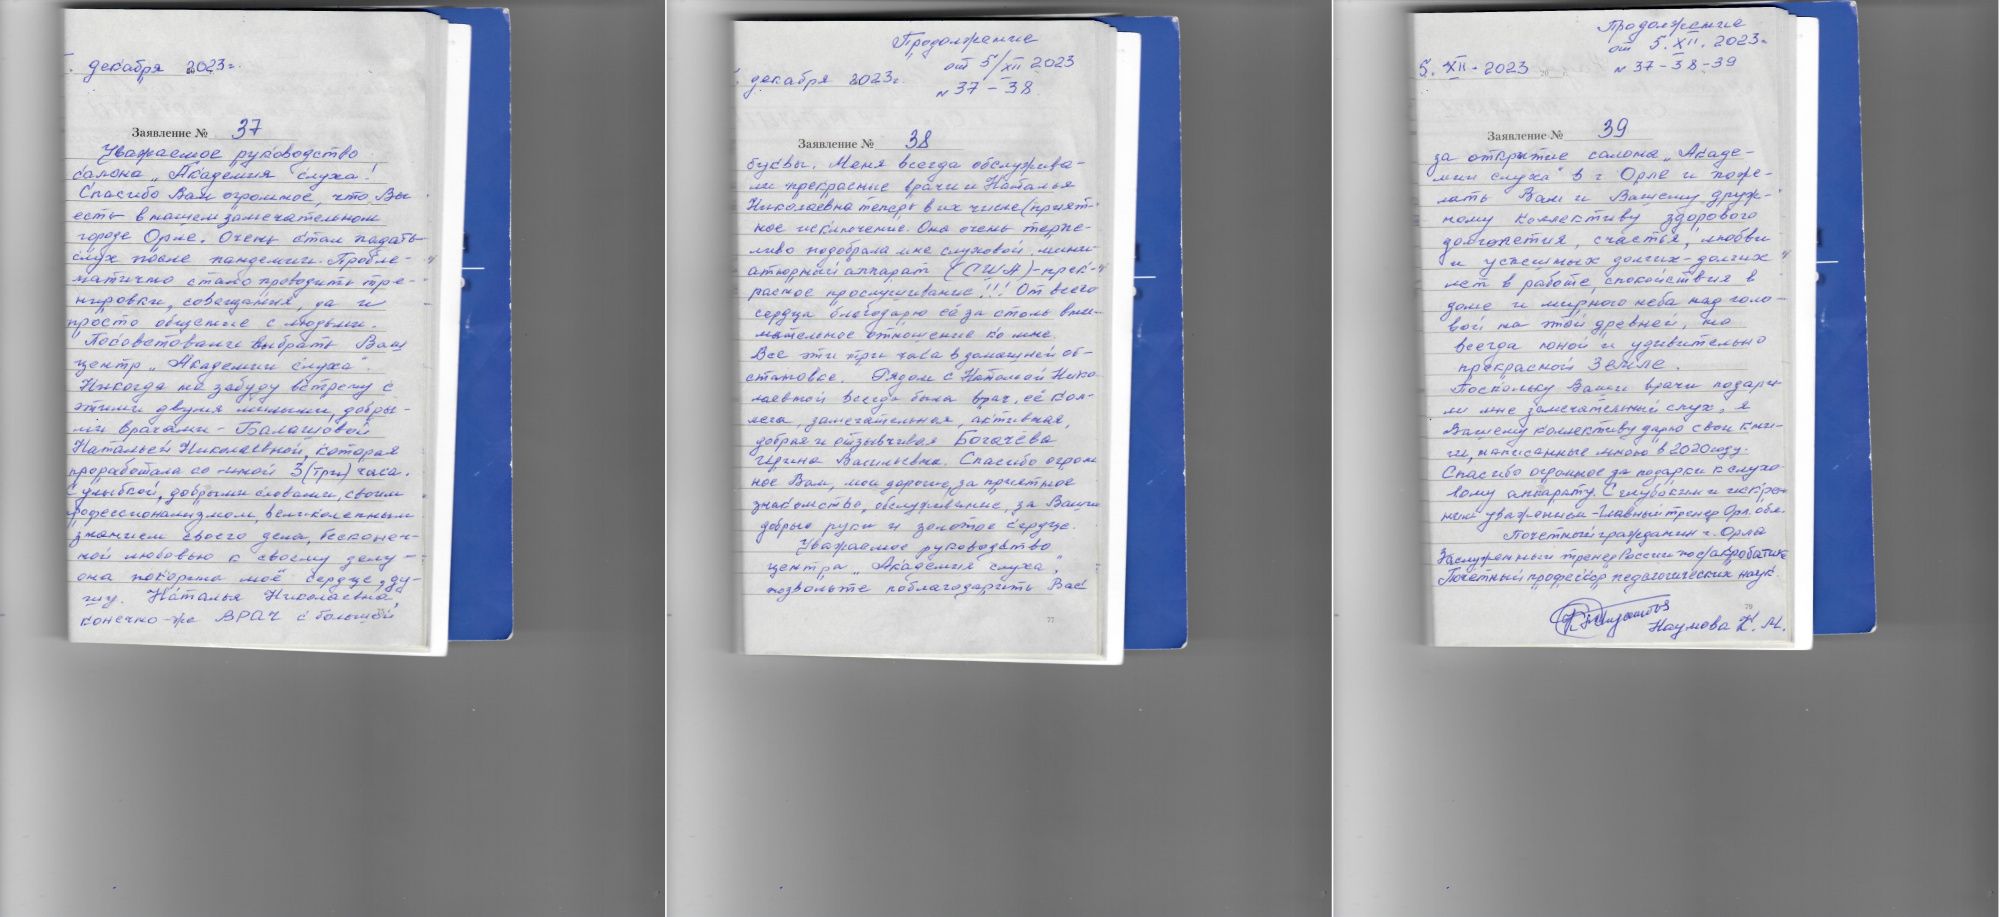 декабря 2023г.
Заявление № 37
Уважаемое руководство
салона „Академия слуха"!
Спасибо Вам огромное, что Вы
есть в нашем замечательном
городе Орле. Очень стал падать
слух после пандемии. Пробле-
матично стало проводить тре-
нировки, совещания, да и
просто общение с людьми.
Посоветовали выбрать Ваш
центр „Академии слуха".
Никогда не забуду встречу с
этими двумя милыми, добры-
ми врачами - Балашовой
Натальей Николаевной, которая
проработала со мной 3 (три) часа.
С улыбкой, добрыми словами, своим
рофессионализмом, великолепным
знанием своего дела, бесконеч-
ной любовью к своему делу -
она покорила моё сердце, ду-
шу. Наталья Николаевна,
конечно-же ВРАЧ с большой
Продолжение
от 5/XII 2023
декабря 2023г.
№ 37 - 38
Заявление № 38
буквы. Меня всегда обслужива-
ли прекрасные врачи и Наталья
Николаевна теперь в их числе (прият-
ное исключение. Она очень терпе-
ливо подобрала мне слуховой мини-
атюрный аппарат (США) - прек-
расное прослушивание!!! От всего
сердца благодарю её за столь вни-
мательное отношение ко мне.
Все эти три часа в домашней об-
становке. Рядом с Натальей Нико-
лаевной всегда была врач, её кол-
лега, замечательная, активная,
добрая и отзывчивая Богачева
Ирина Васильевна. Спасибо огром
ное Вам, мои дорогие, за приятное
знакомство, обслуживание, за Ваши
добрые руки и золотое сердце.
Уважаемое руководство
центра „Академия слуха",
позвольте поблагодарить Вас
77
Продолжение
от 5. XII. 2023г.
5. XII. 2023
№ 37 - 38 - 39
Заявление № 39
за открытие салона „Акаде-
мии слуха" в г Орле и поже-
лать Вам и Вашему друж-
ному коллективу здорового
долголетия, счастья, любви
и успешных долгих-долгих
лет в работе, спокойствия в
доме и мирного неба над голо-
вой на этой древней, но
всегда юной и удивительно
прекрасной Земле.
Поскольку Ваши врачи подари-
ли мне замечательный слух, я
Вашему коллективу дарю свои кни-
ги, написанные мною в 2020 году.
Спасибо огромное за подарки к слухо-
вому аппарату. С глубоким и искрен-
ним уважением - Главный тренер Орл. обл.
Почетный гражданин г. Орла
Заслуженный тренер России по с/акробатике
Почётный профессор педагогических наук.
79
Наумова К. М.